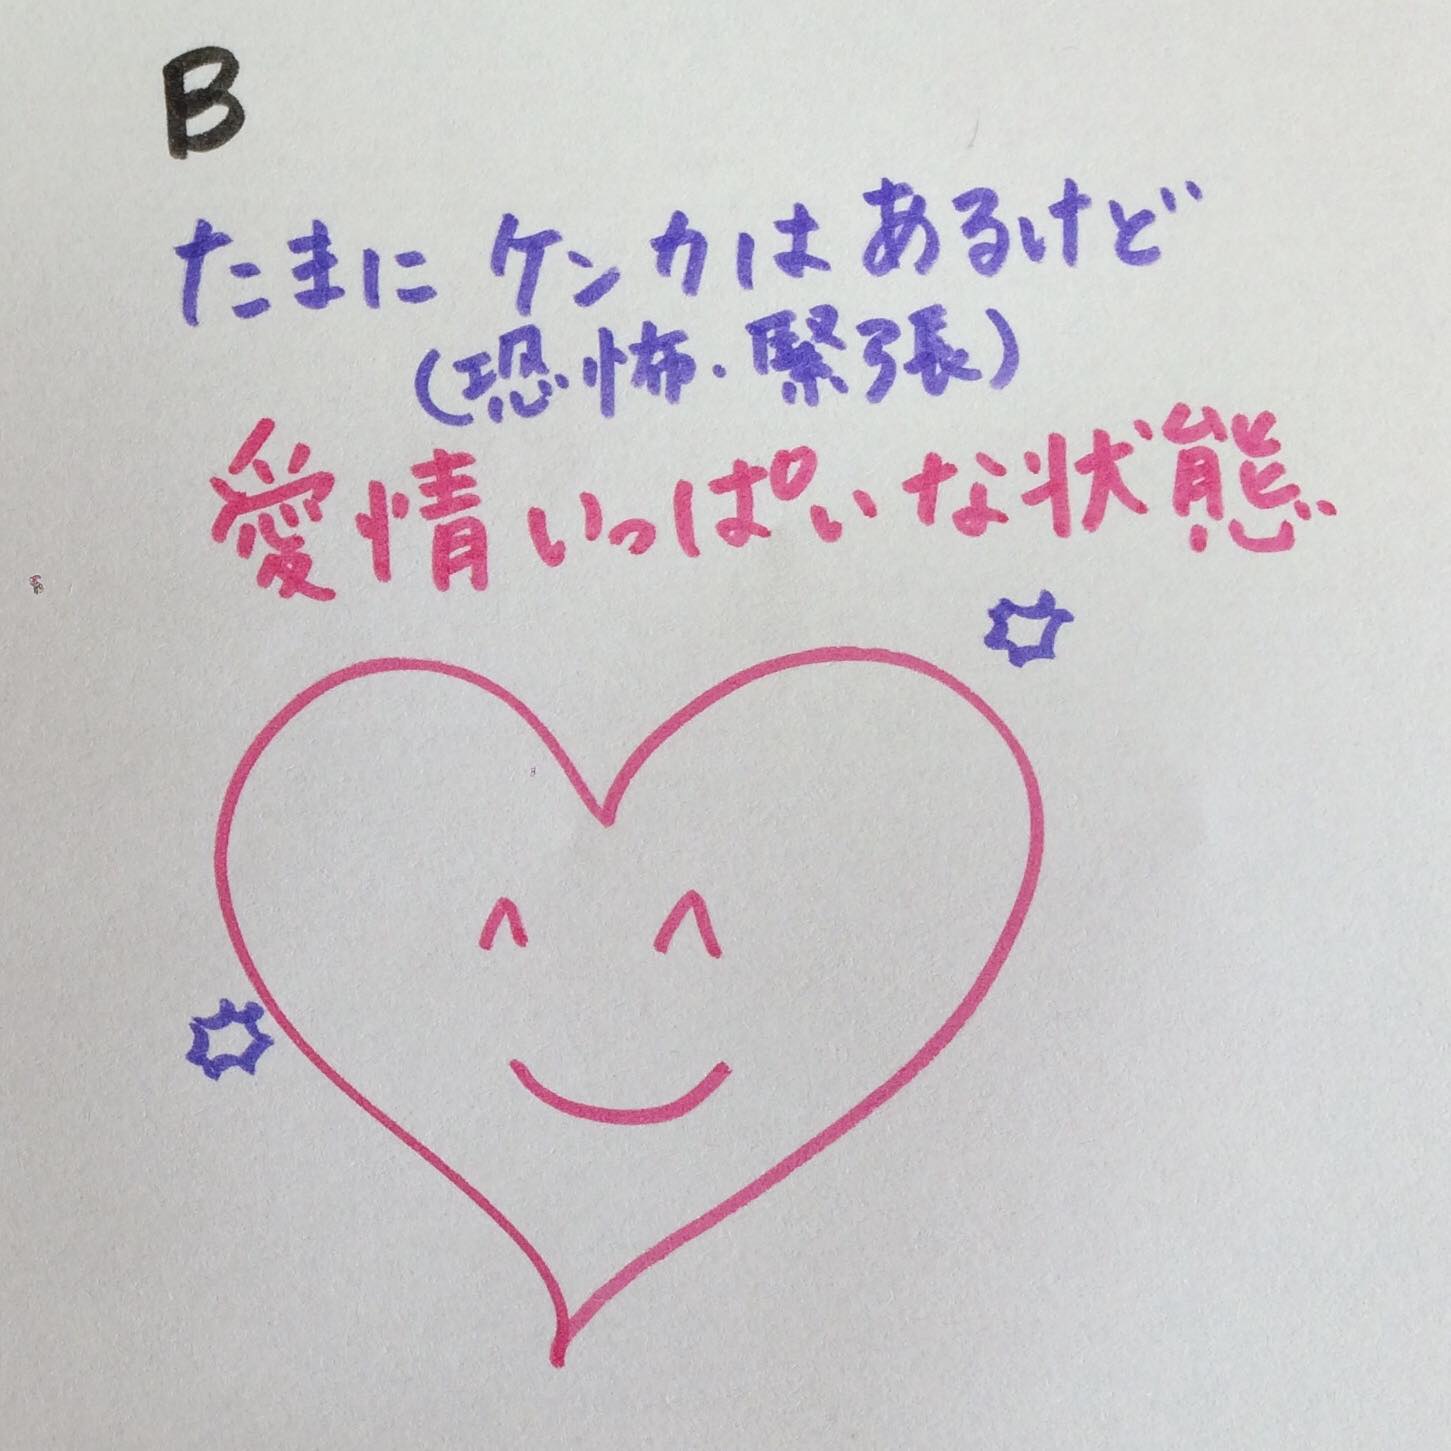 B
たまにケンカはあるけど
(恐怖・緊張)
愛情いっぱいな状態